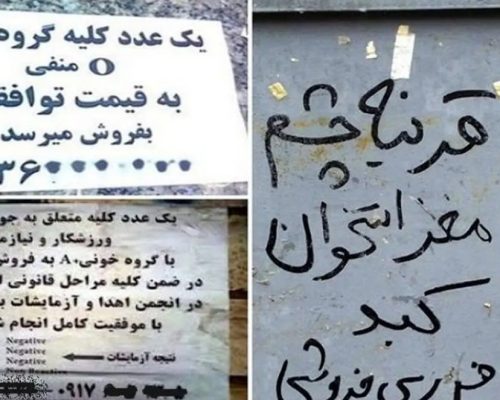 یک عدد کلیه گروه
O منفی
به قیمت توافق
بفروش میرسد
یک عدد کلیه متعلق به جو
ورزشکار و نیازم
با گروه خونی A+ به فروش
در ضمن کلیه مراحل قانونی
در انجمن اهدا و آزمایشات
با موفقیت کامل انجام
Negative
Negative
Negative
Negative
نتیجه آزمایشات
Non Reactive
۰۹۱۷
قرنیه چشم
مغز استخوان
کبد
فوری فروشی